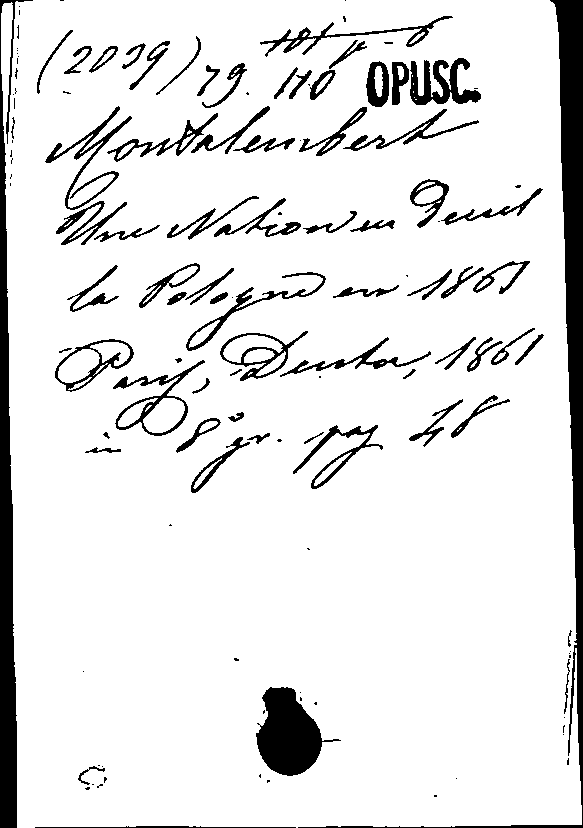 (2039) 79. 110 OPUSC.
Montalembert
Une Nation en Deuil
la Pologne en 1861
Paris, Dentu, 1861
in 8° gr. pag 48